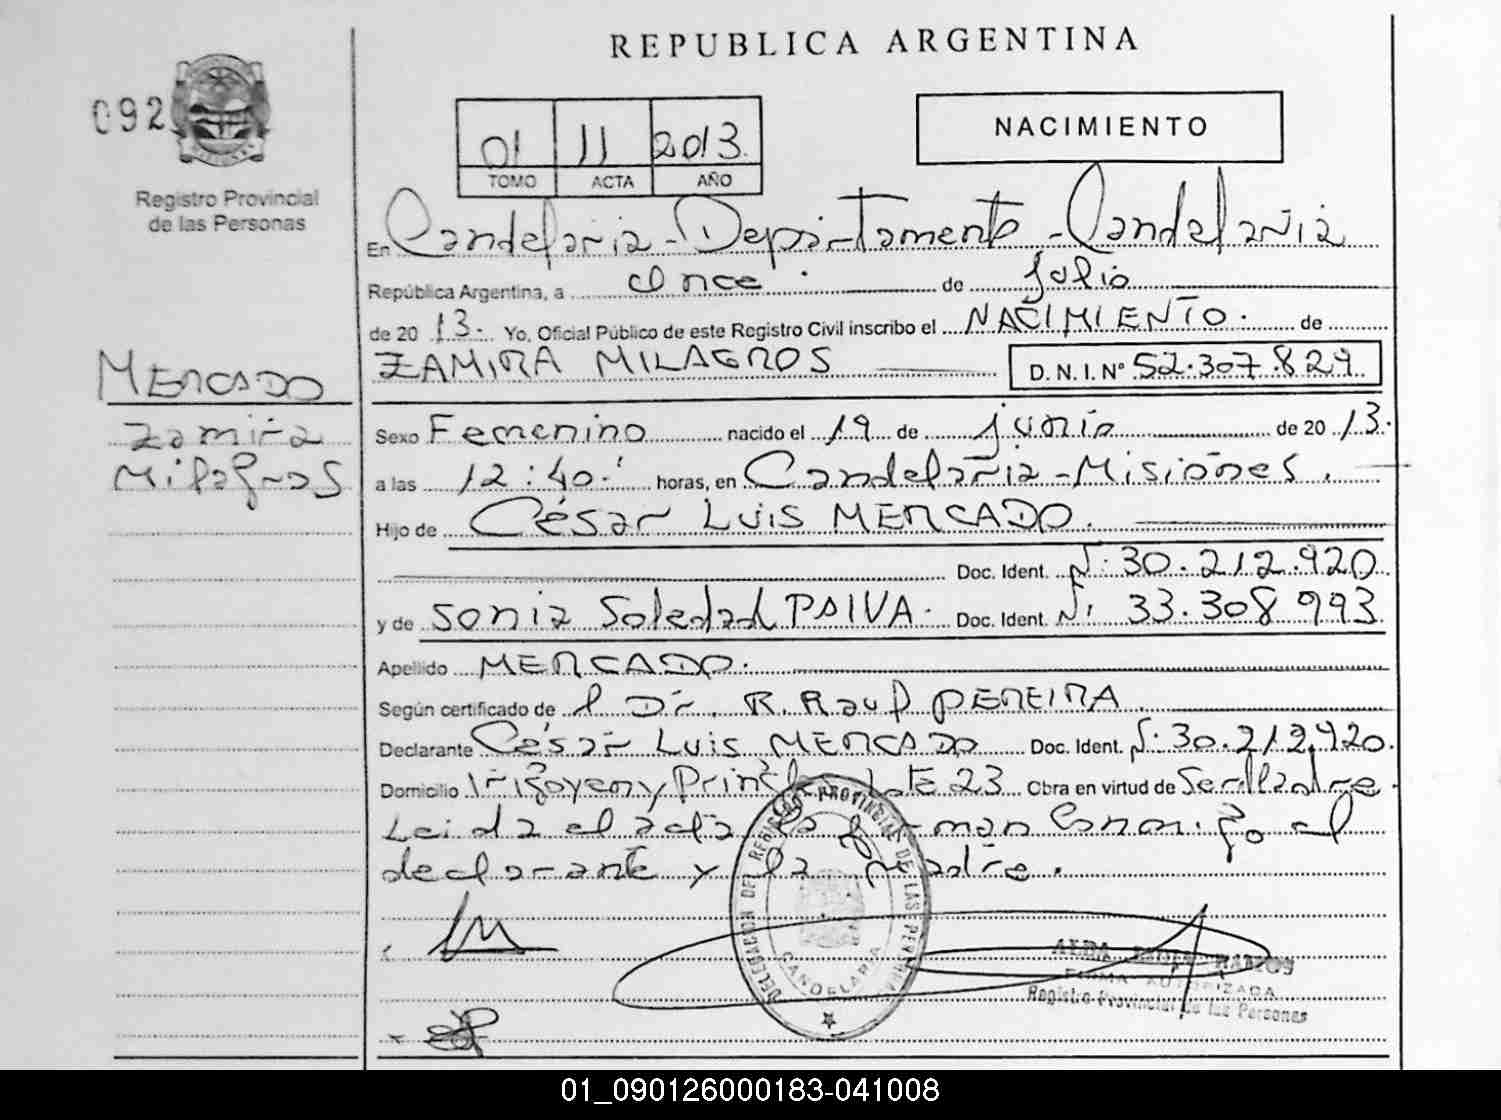 REPUBLICA ARGENTINA
092
Registro Provincial
de las Personas
01 11 2013
TOMO ACTA AÑO
NACIMIENTO
En Candelaria - Departamento - Candelaria
República Argentina, a once de Julio
de 20 13. Yo, Oficial Público de este Registro Civil inscribo el NACIMIENTO. de
ZAMIRA MILAGROS D. N. I. N° 52.307.829
MERCADO
Zamira
Milagros
Sexo Femenino nacido el 19 de junio de 20 13.
a las 12:40. horas, en Candelaria - Misiones.
Hijo de César Luis MERCADO.
Doc. Ident. N: 30.212.920
y de Sonia Soledad PAIVA. Doc. Ident. N: 33.308.993
Apellido MERCADO.
Según certificado de l Dr. R. Raul PEREIRA
Declarante César Luis MERCADO Doc. Ident. N: 30.212.920.
Domicilio Irigoyen y Lote 23 Obra en virtud de Ser el padre.
Leida el acta, la firman Conmigo el
declarante y la madre.
DELEGACION DEL REGISTRO PROVINCIAL DE LAS PERSONAS
CANDELARIA
ALBA
FIRMA AUTORIZADA
Registro Provincial de las Personas
01_090126000183-041008